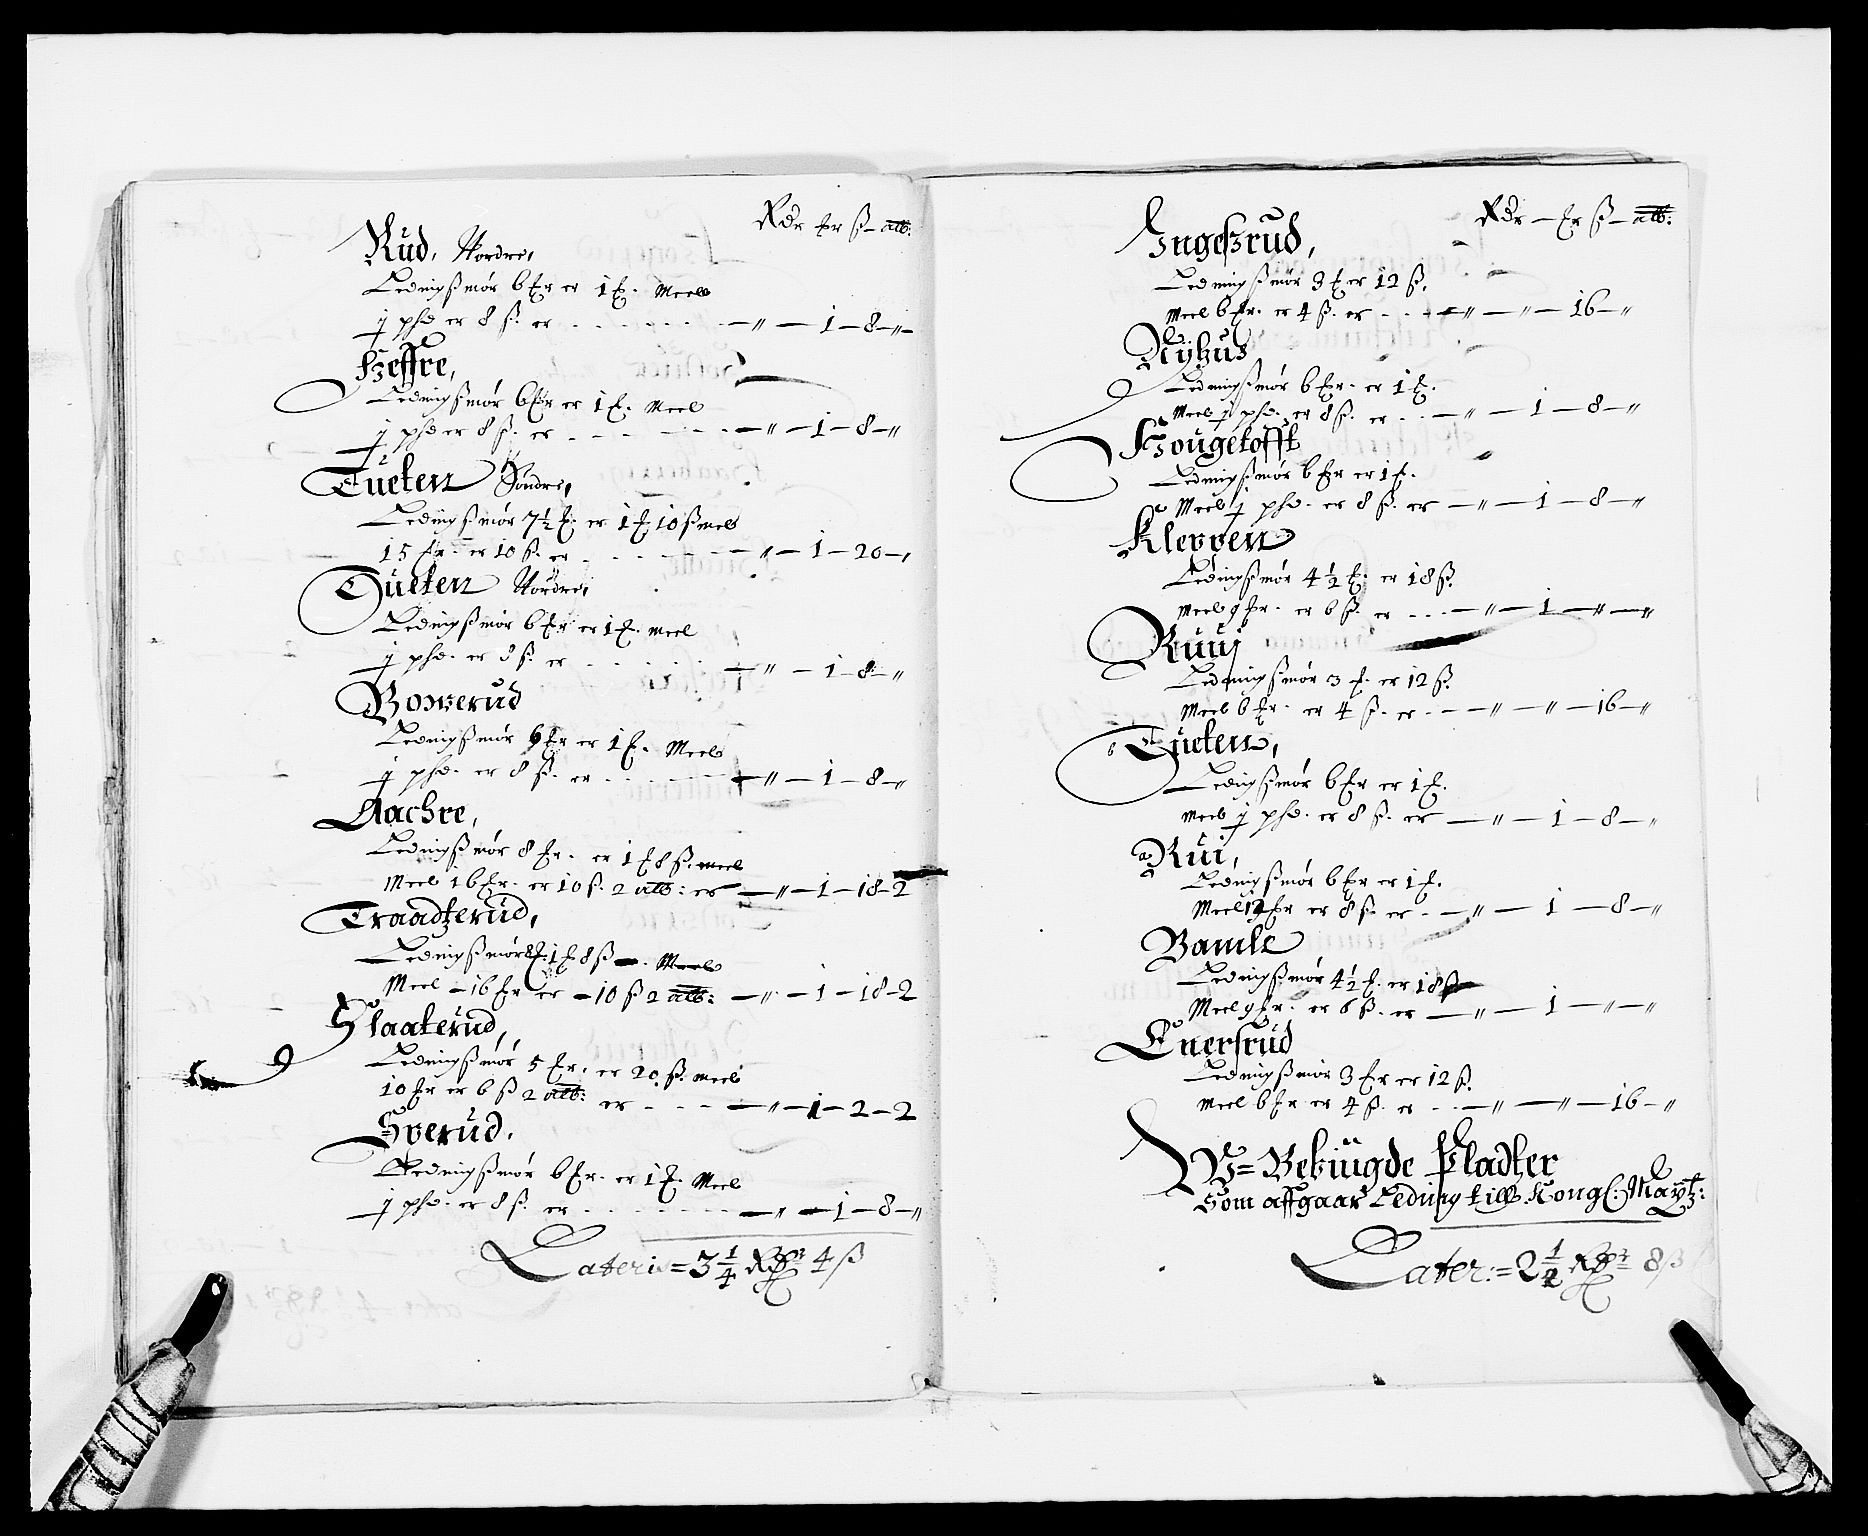 Rdr Er ß alb:
Rüd, Nordre,
Ledingßmør 6 Er er 1 E. Meel
j phd er 8 ß. er - - - - - - - " - 1 - 8 - "
Heffre,
Ledingßmør 6 Er er 1 E. Meel
j phd er 8 ß. er - - - - - - " - 1 - 8 - "
Tueten Søndre,
Ledingßmør 7½ E. er 1 E 10 ß meel
15 Er. er 10 ß. er - - - - - - " - 1 - 20 - "
Tueten Nordre,
Ledingßmør 6 Er er 1 E. meel
j phd. er 8 ß. er - - - - - - " - 1 - 8 - "
Bowerüd
Ledingßmør 6 Er er 1 E. Meel
j phd. er 8 ß. er - - - - - " - 1 - 8 - "
Aachre,
Ledingßmør 8 Er. er 1 E 8 ß. meel
Meel 16 Er. er 10 ß. 2 alb: er - " - 1 - 18 - 2
Traadzerüd,
Ledingßmør 8 E. 1 E 8 ß . Meel
Meel - 16 Er er - 10 ß 2 alb: - " - 1 - 18 - 2
Slaaterüd,
Ledingßmør 5 Er. er 20 ß. meel
10 Er er 6 ß 2 alb: er - - - - " - 1 - 2 - 2
Sverüd.
Ledingßmør 6 Er. er 1 E. Meel
j phd. er 8 ß. er - - - - - - " - 1 - 8 - "
Lateris = 3¼ Rdr 4 ß
Rdr - Er ß - alb:
Ingeßrüd,
Ledingßmør 3 E er 12 ß.
Meel 6 Er. er 4 ß. er - - - " - " - 16 - "
Nÿhus
Ledingßmør 6 Er. er 1 E.
Meel j phd. er 8 ß. er - - - " - 1 - 8 - "
Hougetofft
Ledingßmør 6 Er er 1 E.
Meel j phd. er 8 ß. er - " - 1 - 8 - "
Klevven
Ledingßmør 4½ E. er 18 ß.
Meel 9 Er. er 6 ß. er - - - " - 1 - " - "
Ruuj
Ledingßmør 3 E. er 12 ß.
Meel 6 Er. er 4 ß. er - - - " - " - 16 - "
Tueten,
Ledingßmør 6 Er er 1 E.
Meel j phd. er 8 ß. er - " - 1 - 8 - "
Rui,
Ledingßmør 6 Er er 1 E.
Meel 12 Er er 8 ß. er - - " - 1 - 8 - "
Bamle
Ledingßmør 4½ E. er 18 ß
Meel 9 Er. er 6 ß. er - " - 1 - " - "
Enersrüd
Ledingßmør 3 Er er 12 ß.
Meel 6 Er er 4 ß. er - - - " - " - 16 - "
W= Bebiugde Pladtzer
Som affgaar Leding till Kongl: Maÿtz:
Later: = 2½ Rdr 8 ß